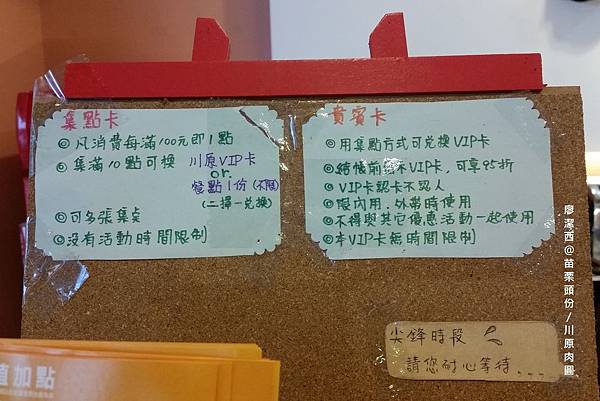 集點卡
◎凡消費每滿100元即1點
◎集滿10點可換 川原VIP卡
or.
餐點1份(不限)
(二擇一兌換)
◎可多張集點
◎沒有活動時間限制
貴賓卡
◎用集點方式可兌換VIP卡
◎結帳前出示VIP卡,可享95折
◎VIP卡認卡不認人
◎限內用.外帶時使用
◎不得與其它優惠活動一起使用
◎本VIP卡無時間限制
尖鋒時段
請您耐心等待...
值加點
廖潔西@苗栗頭份/川原肉圓